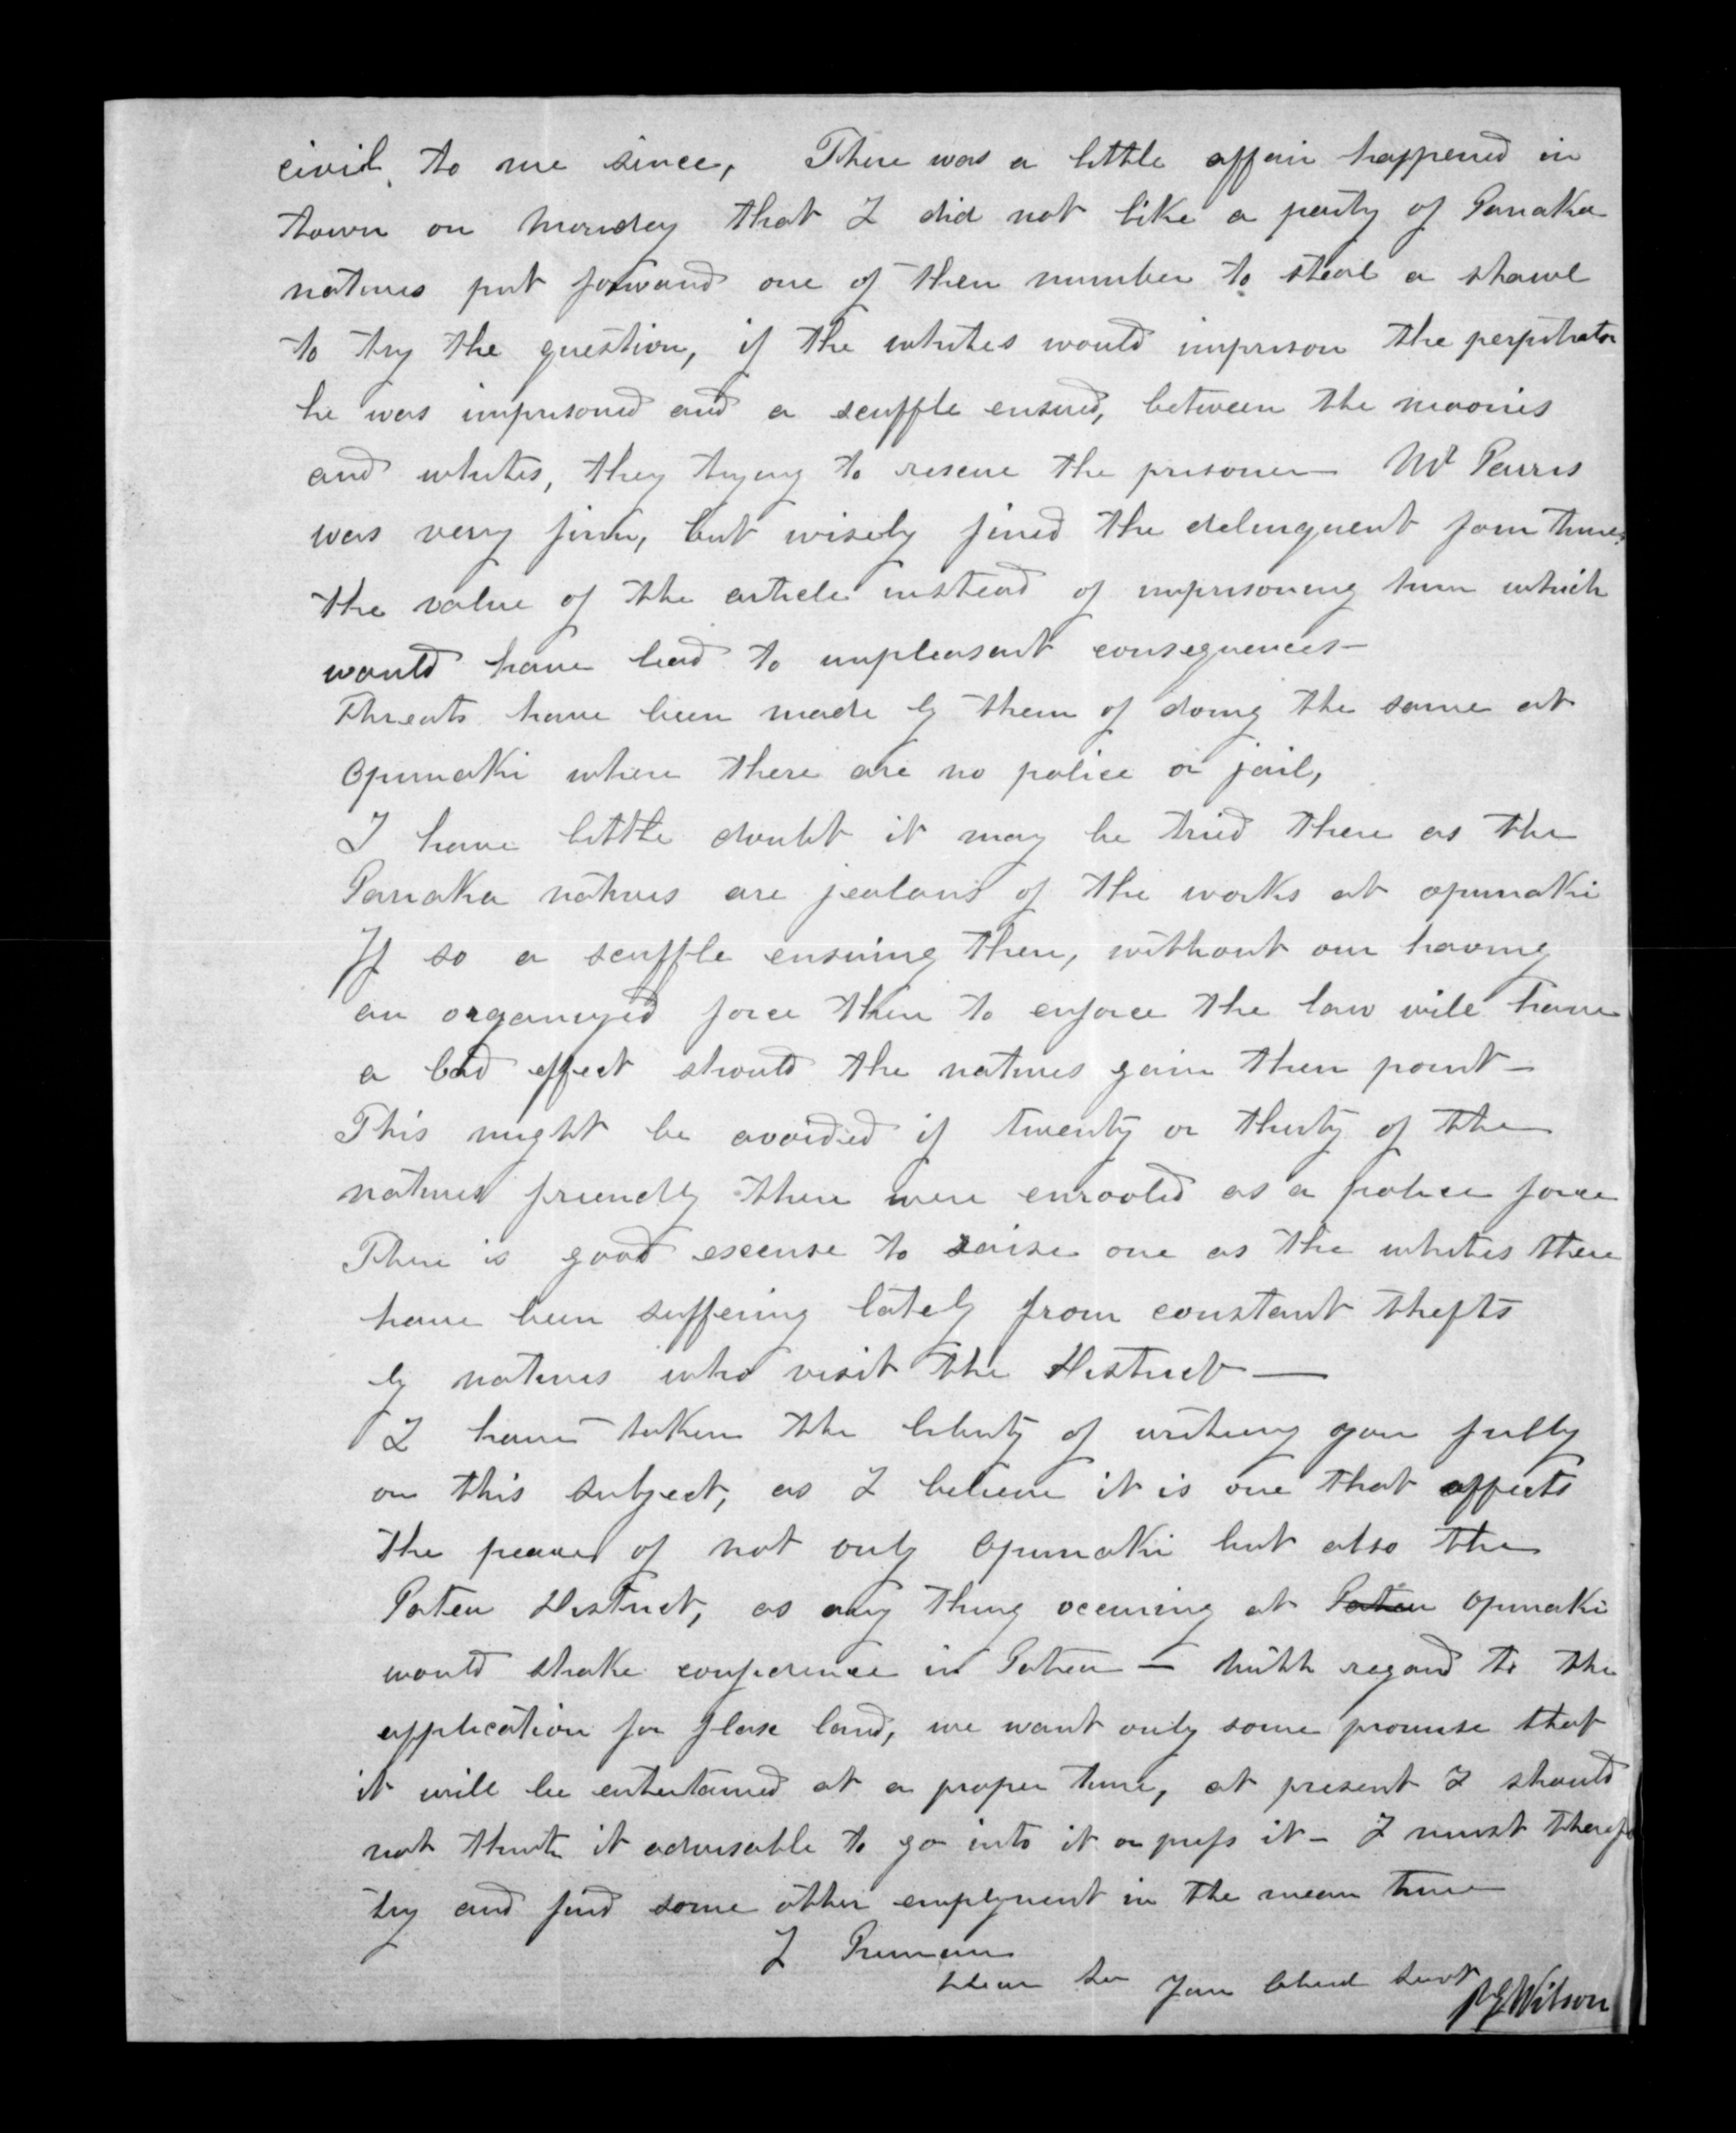 civil, to me since, There was a little affair happened in
town on Monday that I did not like a party of Panaka
natives put forward one of their number to steal a shawl
to try the question, if the whites would imprison the perpetrator
he was imprisoned and a scuffle ensued, between the maories
and whites, they trying to rescue the prisoner — Mr Parris
was very firm, but wisely fined the delinquent four times
the value of the article instead of imprisoning him which
would have lead to unpleasant consequences —
Threats have been made by them of doing the same at
Opunaki where there are no police or jail,
I have little doubt it may be tried there as the
Panaka natives are jealous of the works at opunaki
If so a scuffle ensuing there, without our having
an organized force there to enforce the law will have
a bad effect should the natives gain their point —
This might be avoided if twenty or thirty of the
natives friendly there were enrooled as a police force
There is good excuse to raise one as the whites there
have been suffering lately from constant thefts
by natives who visit the District —
I have taken the liberty of writing you fully
on this subject, as I believe it is one that affects
the peace of not only Opunaki but also the
Patea District, as any thing occuring at Patea Opunaki
would shake confidence in Patea — With regard to the
application for flax land, we want only some promise that
it will be entertained at a proper time, at present I should
not think it advisable to go into it or press it — I must therefore
try and find some other employment in the mean time
I Remain
Dear Sir Your Obed Servt
Wilson